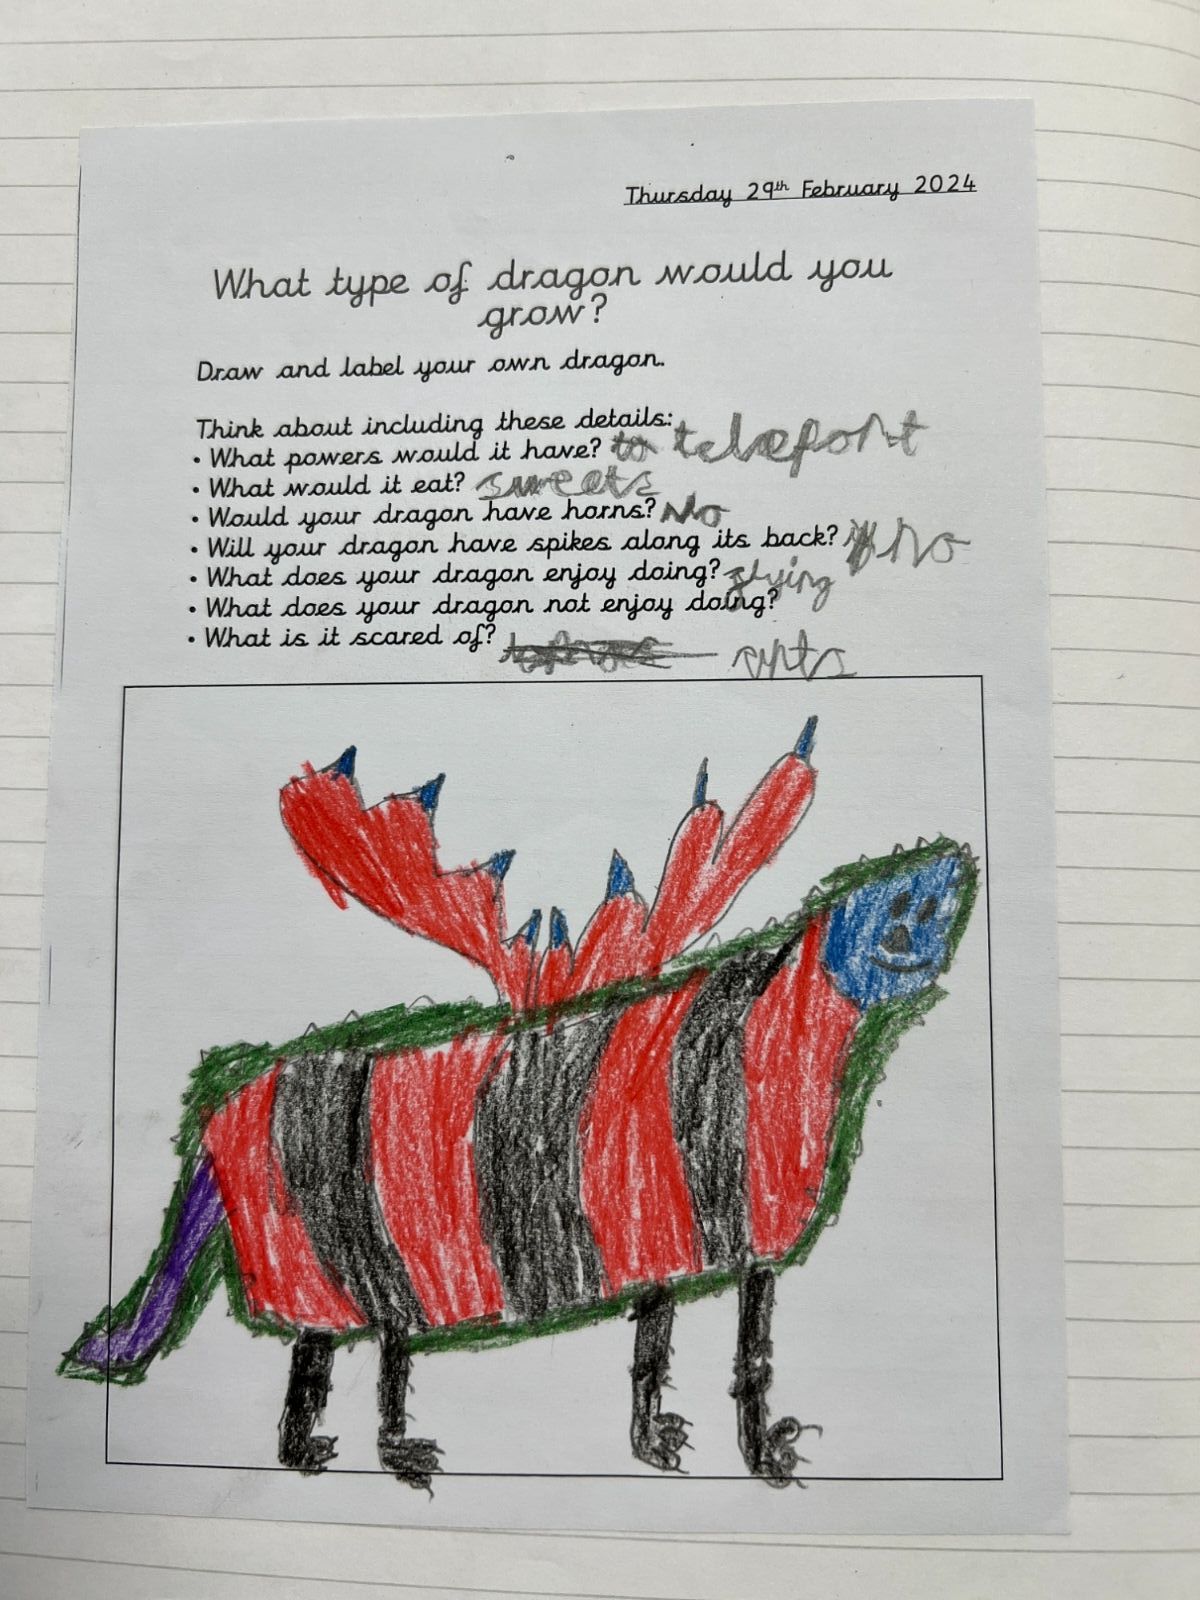 Thursday 29th February 2024
What type of dragon would you
grow?
Draw and label your own dragon.
Think about including these details:
• What powers would it have? to teleport
• What would it eat? sweets
• Would your dragon have horns? No
• Will your dragon have spikes along its back? No
• What does your dragon enjoy doing? flying
• What does your dragon not enjoy doing?
• What is it scared of?